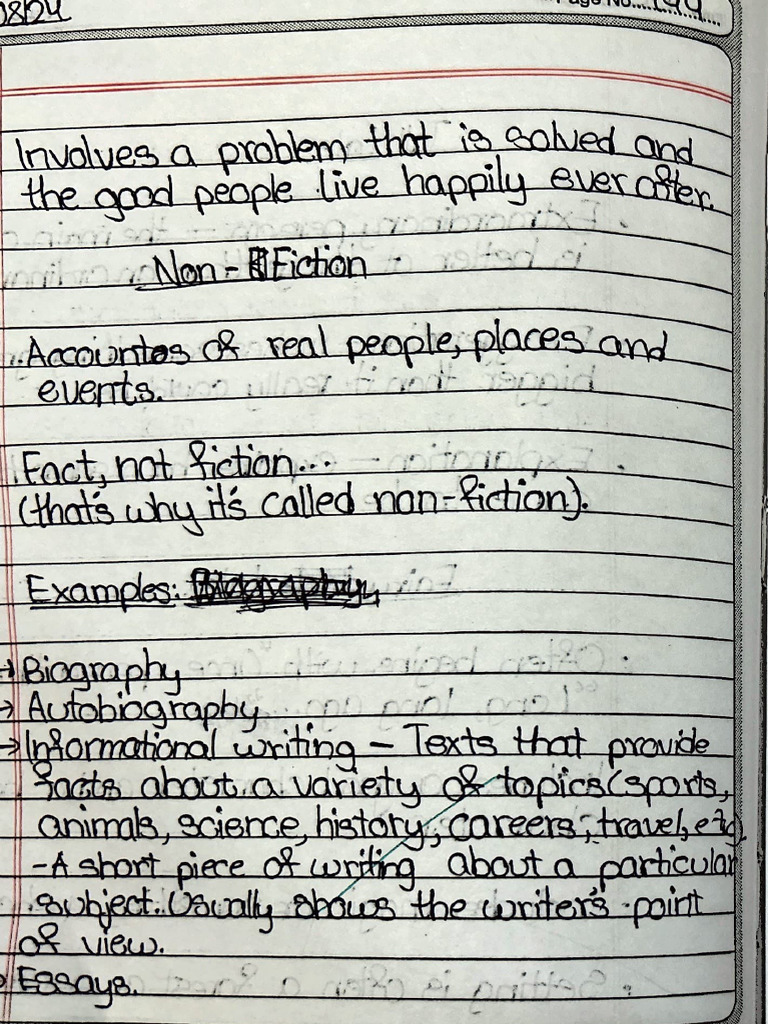 08/24
Page No.....
Involves a problem that is solved and
the good people live happily ever after.
Non-Fiction
Accountes of real people, places and
events.
Fact, not fiction...
(that's why it's called non-fiction).
Examples:
→ Biography
→ Autobiography
→ Informational writing – Texts that provide
facts about a variety of topics (sports,
animals, science, history, careers, travel, etc).
-A short piece of writing about a particular
subject. Usually shows the writer's point
of view.
Essays.